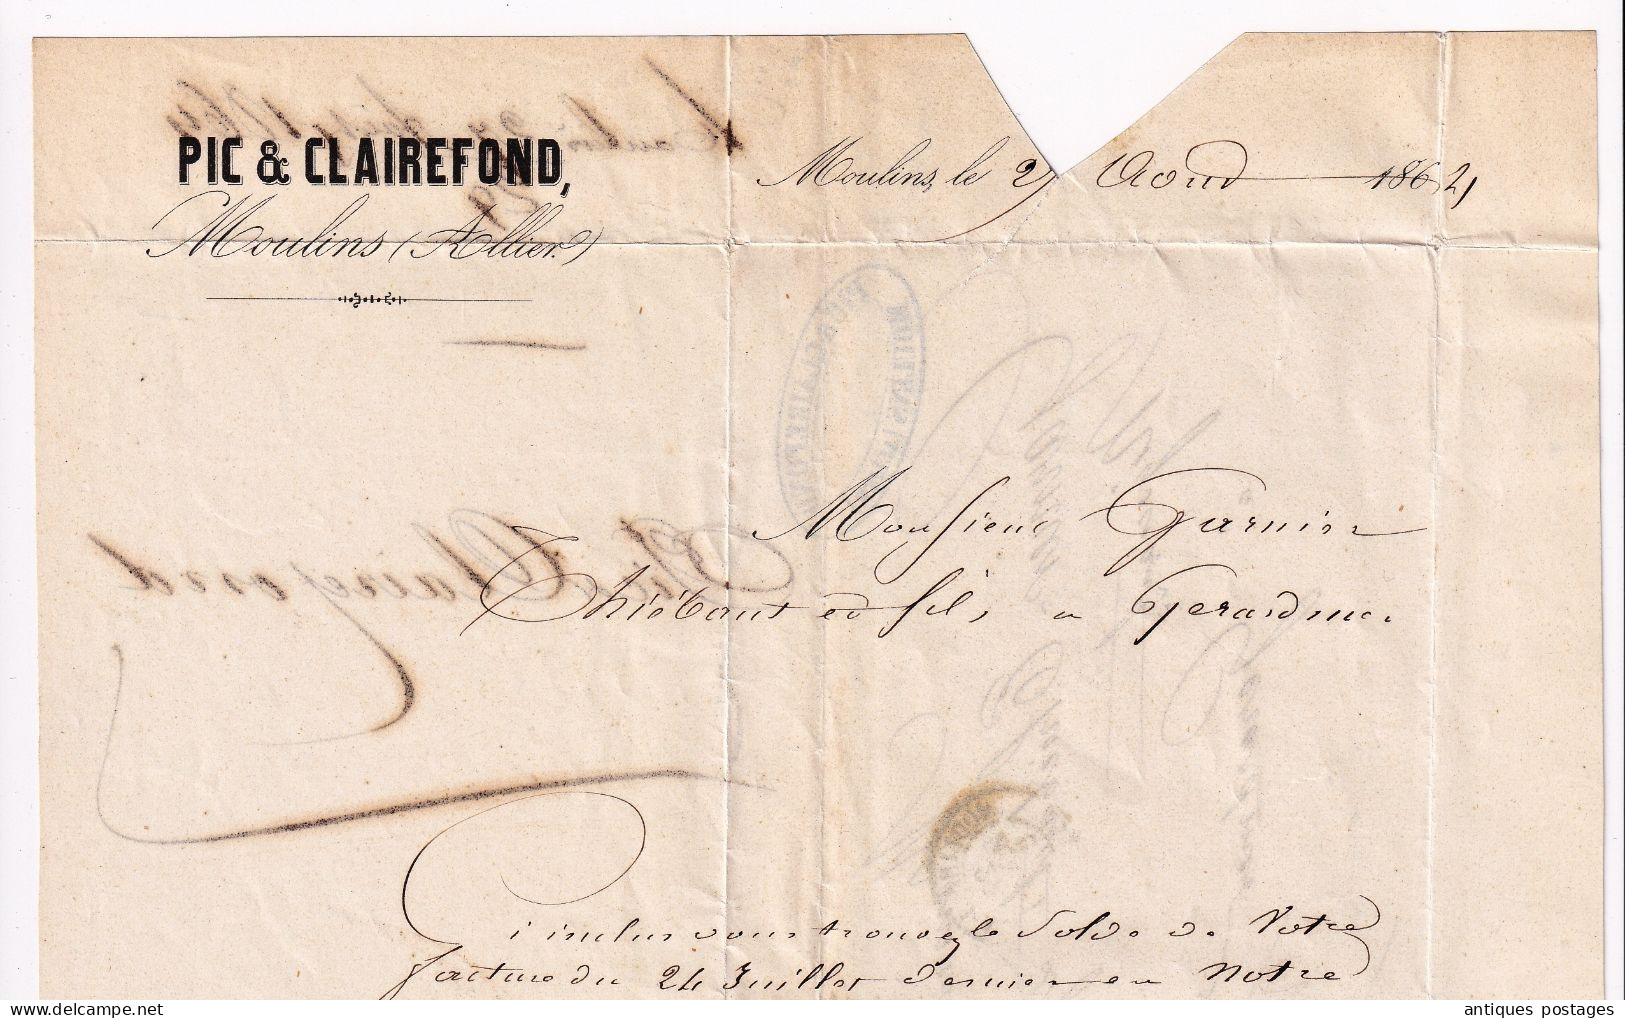 PIC & CLAIREFOND,
Moulins (Allier)
Moulins, le 27 Aoud 1864
Monsieur Garnier
Thiébaut et fils, a Gerardmer
Ci inclus vous trouvez le Solde de Votre
facture du 24 Juillet dernier en Notre
antiques postages
delcampe.net